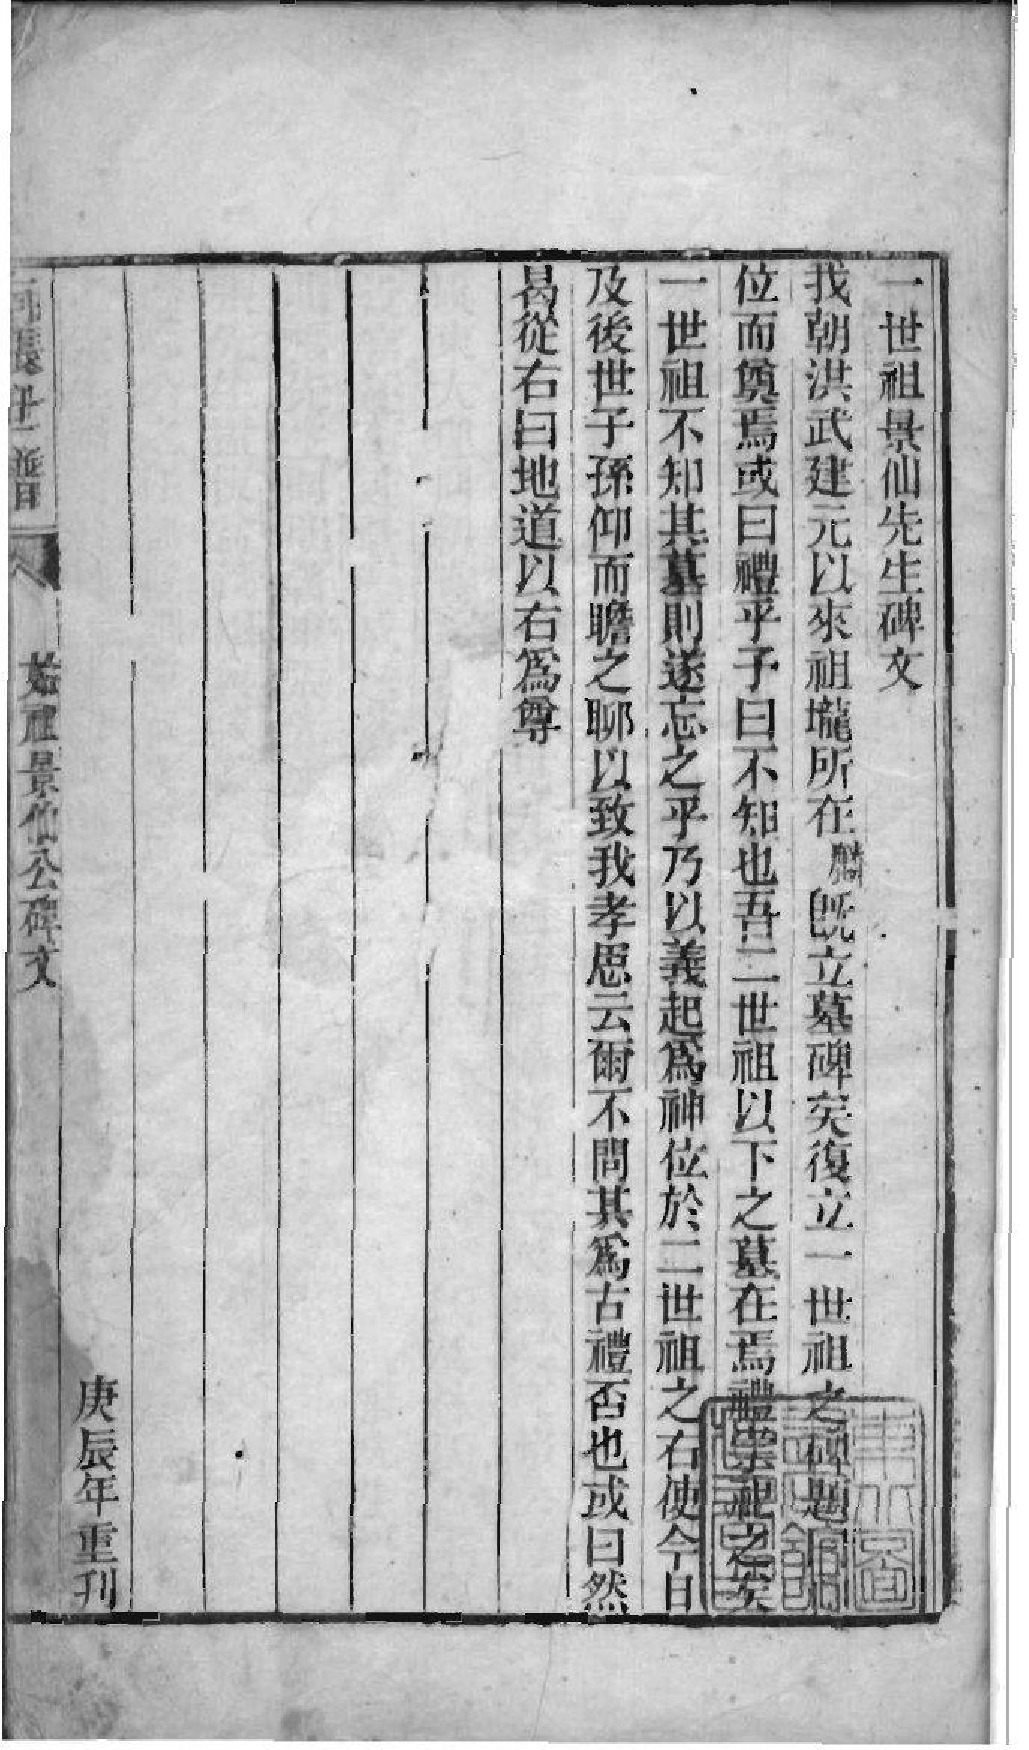 一世祖景仙先生碑文
我朝洪武建元以來祖壠所在既立墓碑矣復立一世祖之碑題
位而奠焉或曰禮乎予曰不知也吾二世祖以下之墓在焉禮祟祀之矣
一世祖不知其墓則遂忘之乎乃以義起爲神位於二世祖之右使今日
及後世子孫仰而瞻之聊以致我孝思云爾不問其爲古禮否也或曰然
曷從右曰地道以右爲尊
庚辰年重刊
景仙公碑文